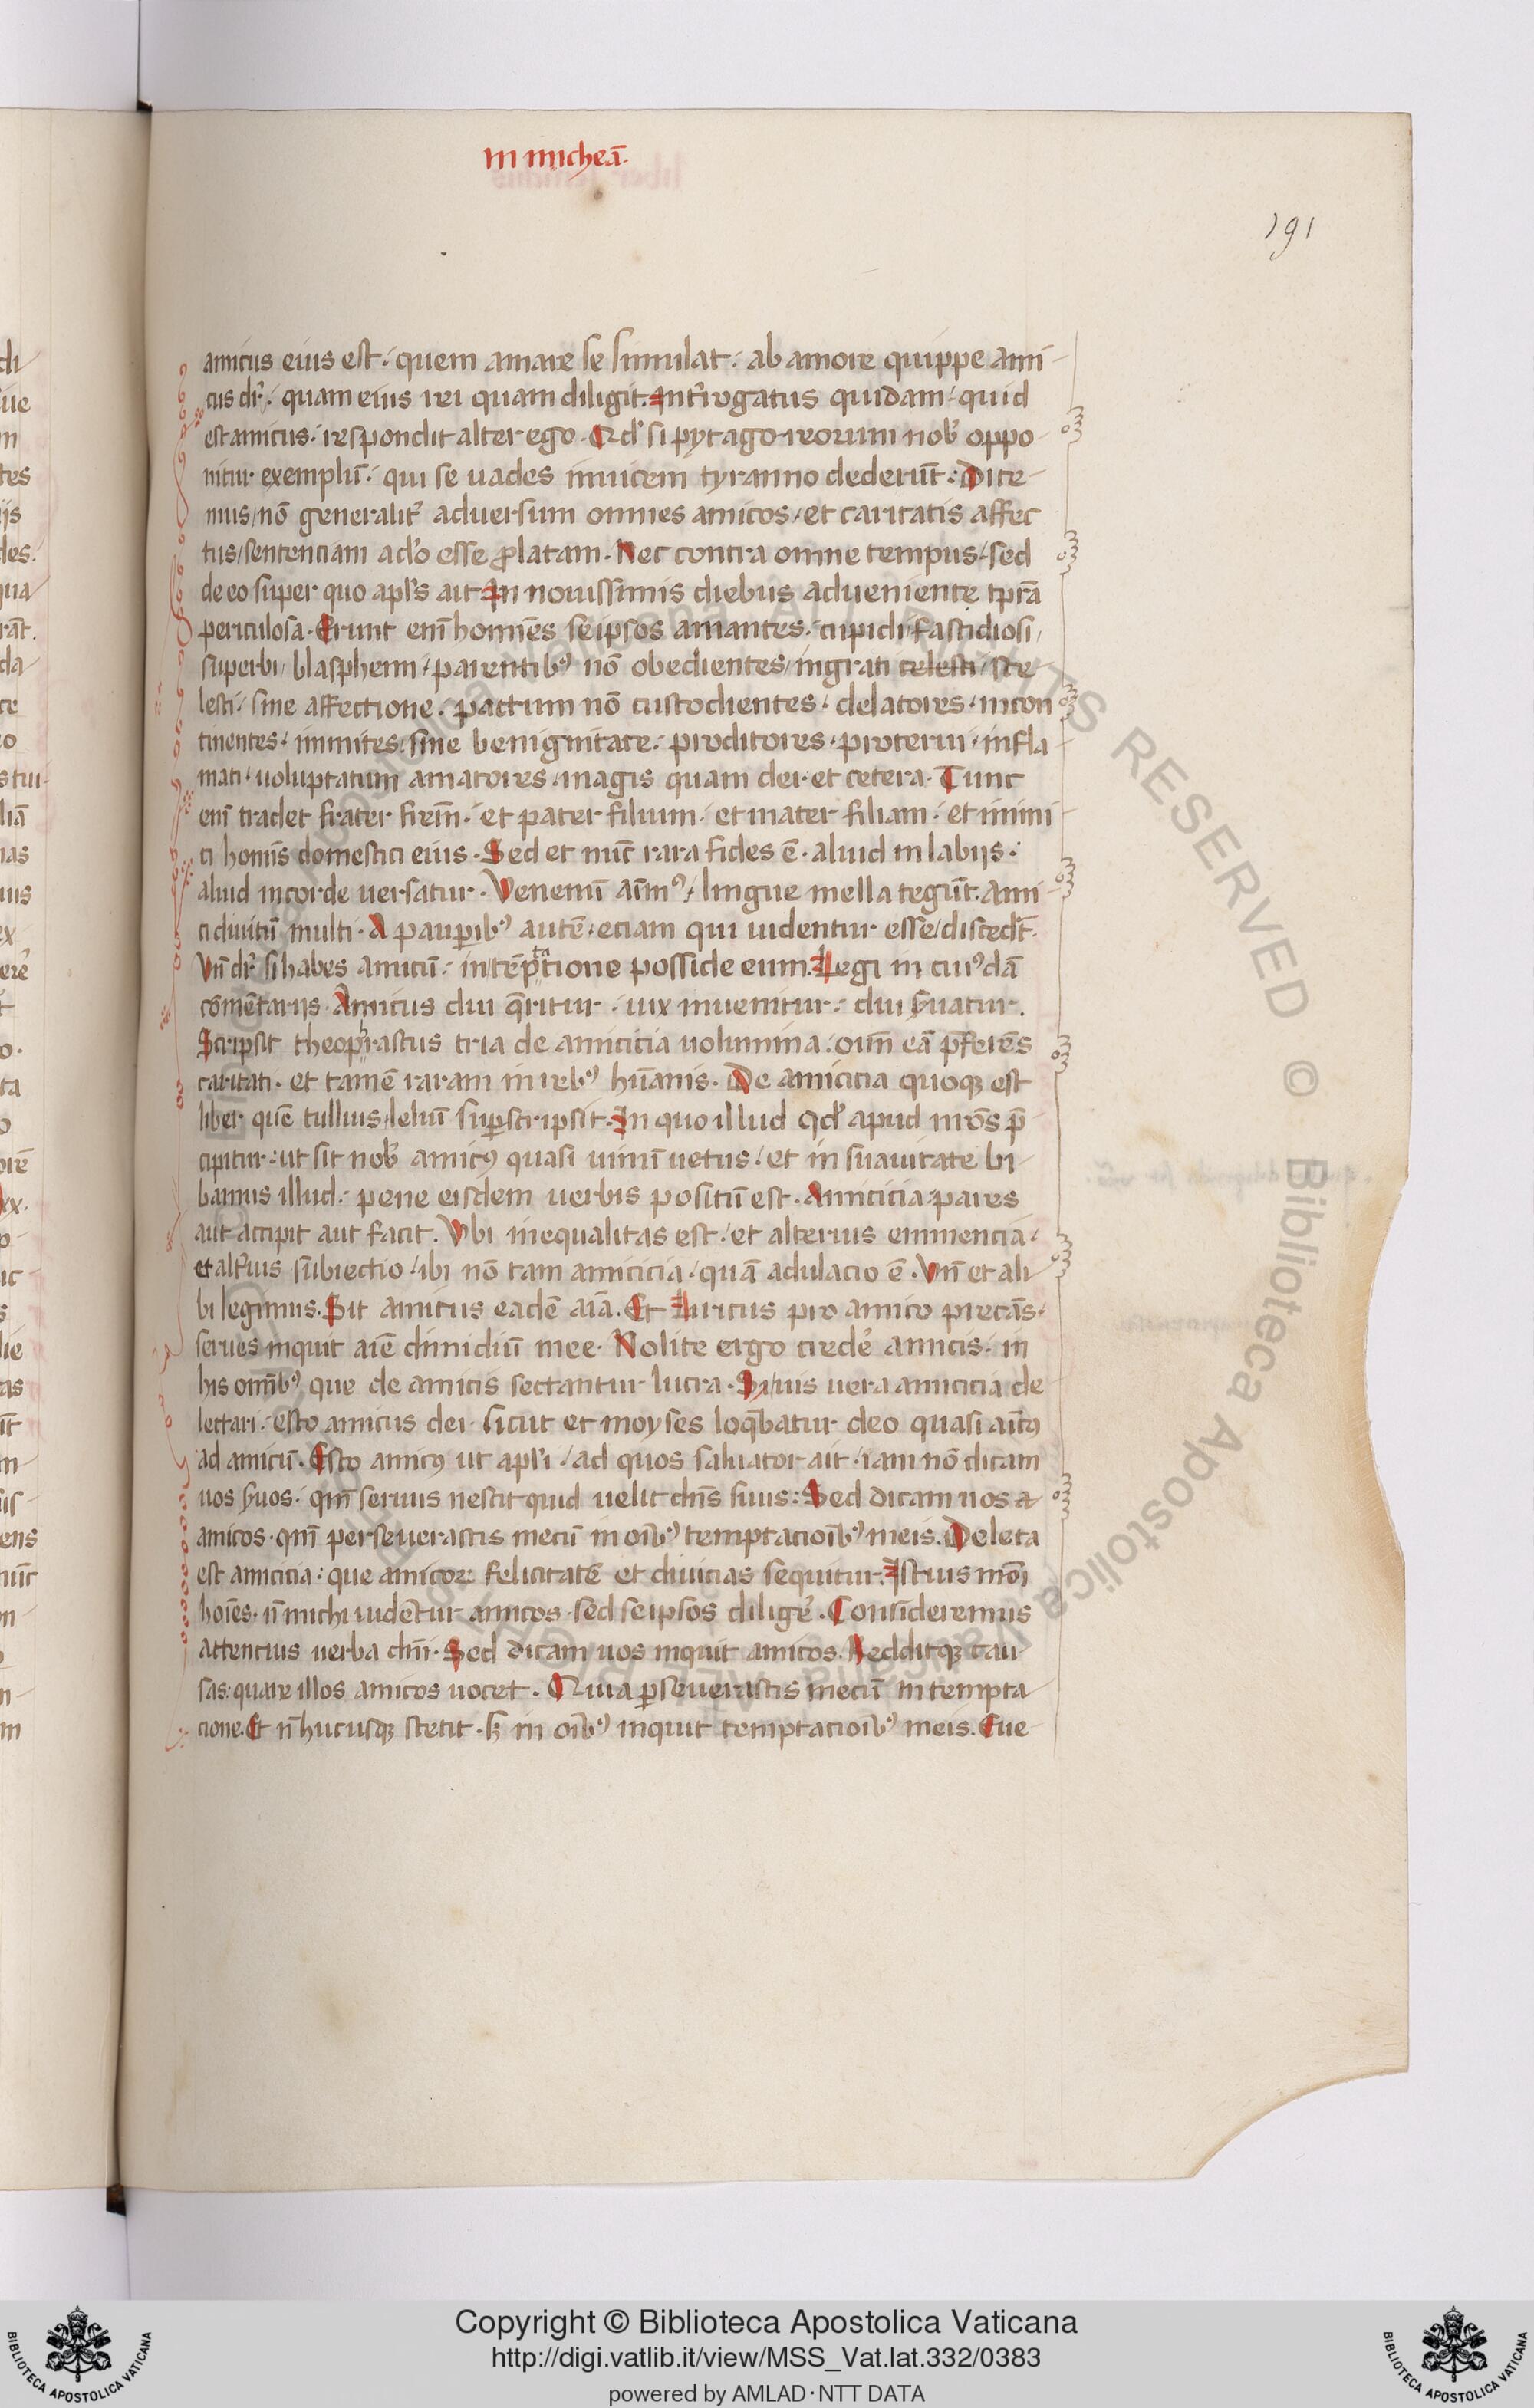 in micheā.
191
amicus eius est. quem amare se simulat. ab amore quippe ami
cus dr̄. quam eius rei quam diligit. Int̄rogatus quidam quid
est amicus. respondit alter ego. Qd̓ si pytagoreorum nob̓ oppo
nitur exemplū. qui se uades inuicem tyranno dederūt. Dice
mus nō generalit̓ aduersum omnes amicos et caritatis affec
tus sentenciam ad̓o esse ꝓlatam. Nec contra omne tempus sed
de eo super quo apl̓s ait In nouissimis diebus aduenient tp̄ra
periculosa. Erunt enī homīes seipsos amantes. cupidi fastidiosi
superbi blasphemi parentibꝰ nō obedientes ingrati celesti sce
lesti. sine affectione. pactum nō custodientes. delatores. incon
tinentes. inmites. sine benignitate. proditores. proterui. infla
mati. uoluptatum amatores magis quam dei. et cetera. Tunc
enī tradet frater frēm. et pater filium. et mater filiam. et inimi
ci homīs domestici eius. Sed et nūc rara fides ē. aliud in labijs.
aliud in corde uersatur. Venenū aīmꝰ lingue mella tegūt. ami
ci diuitū multi. A pauꝑibꝰ autē. eciam qui uidentur esse discedūt.
Vn̄ dr̄ si habes amicū. in tēptatione posside eum. Legi in cuiꝰdā
cōmētarijs. Amicus diu q̄ritur. uix inuenitur. diu s̓uatur.
Scripsit theophrastus tria de amicicia uolumina. oīm eā p̄ferēs
caritati. et tamē raram in rebꝰ hūanis. De amicicia quoqꝫ est
liber quē tullius leliū suꝑscripsit. In quo illud qd̓ apud nr̄os p̄
cipitur. ut sit nob̓ amicꝰ quasi uinū uetus. et in suauitate bi
bamus illud. pene eisdem uerbis positū est. Amicicia pares
aut accipit aut facit. Vbi inequalitas est. et alterius eminencia
et alt̓ius subiectio ibi nō tam amicicia quā adulacio ē. Vn̄ et ali
bi legimus. Sit amicus eadē aīa. Et liricus pro amico precās.
serues inquit aīe dimidiū mee. Nolite ergo cred̓e amicis. in
his om̄ibꝰ que de amicis sectantur lucra. Si uis uera amicicia de
lectari. esto amicus dei. sicut et moyses loq̄batur deo quasi aīcꝰ
ad amicū. Esto amicꝰ ut apl̓i ad quos saluator ait. iam nō dicam
uos s̓uos. qm̄ seruus nescit quid uelit dn̄s suus. Sed dicam uos a
amicos. qm̄ perseuerastis mecū in oīb̓ꝰ temptacioīb̓ꝰ meis. Deleta
est amicicia. que amicoꝝ felicitatē et diuicias sequitur. Istius mōi
hoīes. n̄ michi uidētur amicos sed seipsos dilig̓e. Consideremus
attencius uerba dn̄i. Sed dicam uos inquit amicos. Redditqꝫ cau
sas. quare illos amicos uocet. Quia ꝑseuerastis mecū in tempta
cione. Et n̄ hucusqꝫ stetit. sꝫ in oīb̓ꝰ inquit temptacioīb̓ꝰ meis. Fue
Copyright © Biblioteca Apostolica Vaticana
http://digi.vatlib.it/view/MSS_Vat.lat.332/0383
powered by AMLAD·NTT DATA